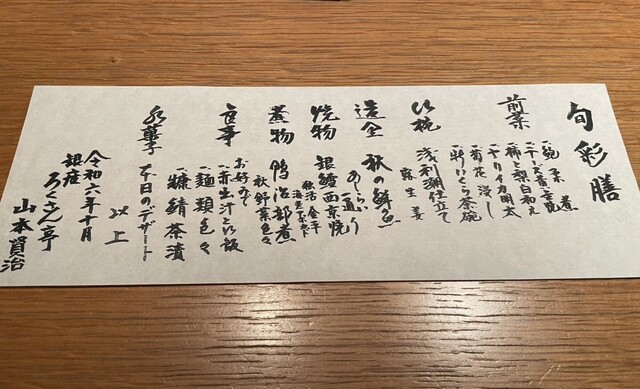 旬彩膳
前菜
一、蛻 栗 煮
一、チーズ西京焼
一、柿と梨白和え
一、ヤリイカ明太
一、菊花浸し
一、新いくら茶碗
小椀
浅利潮仕立て
露生姜
造里
秋の鮮魚
あしらい一通り
焼物
銀鱈西京焼
煮物
鴨治部煮
秋野菜色々
食事
お好みで
一、赤出汁と御飯
一、麺類色々
一、糠鯖茶漬
水菓子
本日のデザート
以上
令和六年十月
銀座 ろくさん亭
山本賢治